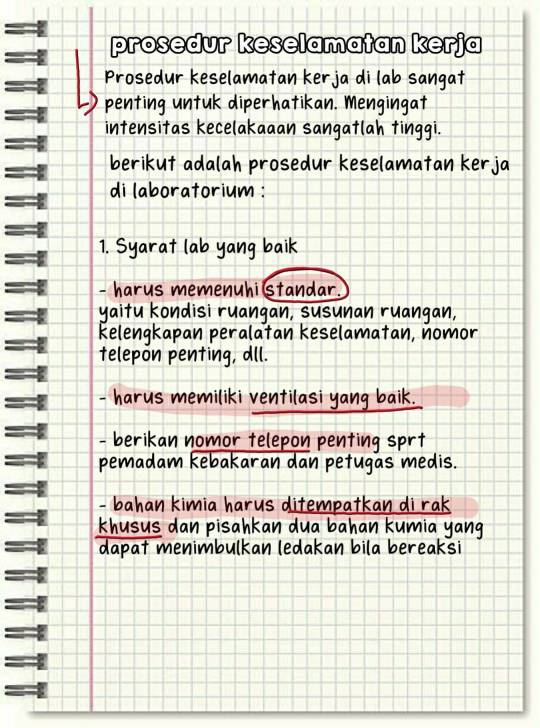 prosedur keselamatan kerja
Prosedur keselamatan kerja di lab sangat
penting untuk diperhatikan. Mengingat
intensitas kecelakaaan sangatlah tinggi.
berikut adalah prosedur keselamatan kerja
di laboratorium :
1. Syarat lab yang baik
- harus memenuhi standar.
yaitu kondisi ruangan, susunan ruangan,
kelengkapan peralatan keselamatan, nomor
telepon penting, dll.
- harus memiliki ventilasi yang baik.
- berikan nomor telepon penting sprt
pemadam kebakaran dan petugas medis.
- bahan kimia harus ditempatkan di rak
khusus dan pisahkan dua bahan kumia yang
dapat menimbulkan ledakan bila bereaksi